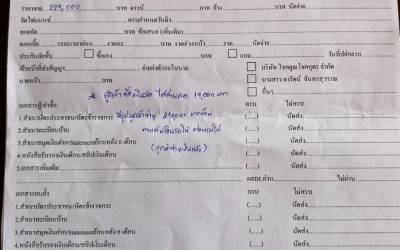 ราคาขาย 229,000 บาท ดาวน์ บาท ค้าง บาท นัดจ่าย
จัดไฟแนนซ์ ครบกำหนดวันที่
ยอดจัด บาท ข้อเสนอ (เพิ่มเติม)
ดอกเบี้ย ระยะเวลาผ่อน งวดละ บาท งวดล่วงหน้า บาท นัดจ่าย
ประกันภัยชั้น ซื้อเอง บาท แถม บาท วันที่ปล่อยรถ
เจ้าหน้าที่ทำสัญญา จ่ายค่าตัวรถในนาม บริษัท โชคคูณโชคกรุตร จำกัด
นายหน้า บาท นางสาวดารัตน์ จันทรสุวรรณ
* ลูกค้าซื้อเงินสด ได้ส่วนลด 10,000 บาท อื่นๆ
เอกสารผู้เช่าซื้อ ครบ ไม่ครบ
1.สำเนาบัตรประชาชน/บัตรข้าราชการ สรุปลูกค้าจ่าย (.....) นัดส่ง
2.สำเนาทะเบียนบ้าน (.....) นัดส่ง
3.สำเนาสมุดเงินฝาก/Statementย้อนหลัง 6 เดือน (.....) นัดส่ง
4.หนังสือรับรองเงินเดือน/สลิปเงินเดือน (.....) นัดส่ง
5.เอกสารเพิ่มเติม ผอบ.ผ่าน ไม่ผ่าน
เอกสารคนค้ำ ครบ ไม่ครบ
1.สำเนาบัตรประชาชน/บัตรข้าราชการ (.....) นัดส่ง
2.สำเนาทะเบียนบ้าน (.....) นัดส่ง
3.สำเนาสมุดเงินฝาก/Statementย้อนหลัง 6 เดือน (.....) นัดส่ง
4.หนังสือรับรองเงินเดือน/สลิปเงินเดือน (.....) นัดส่ง